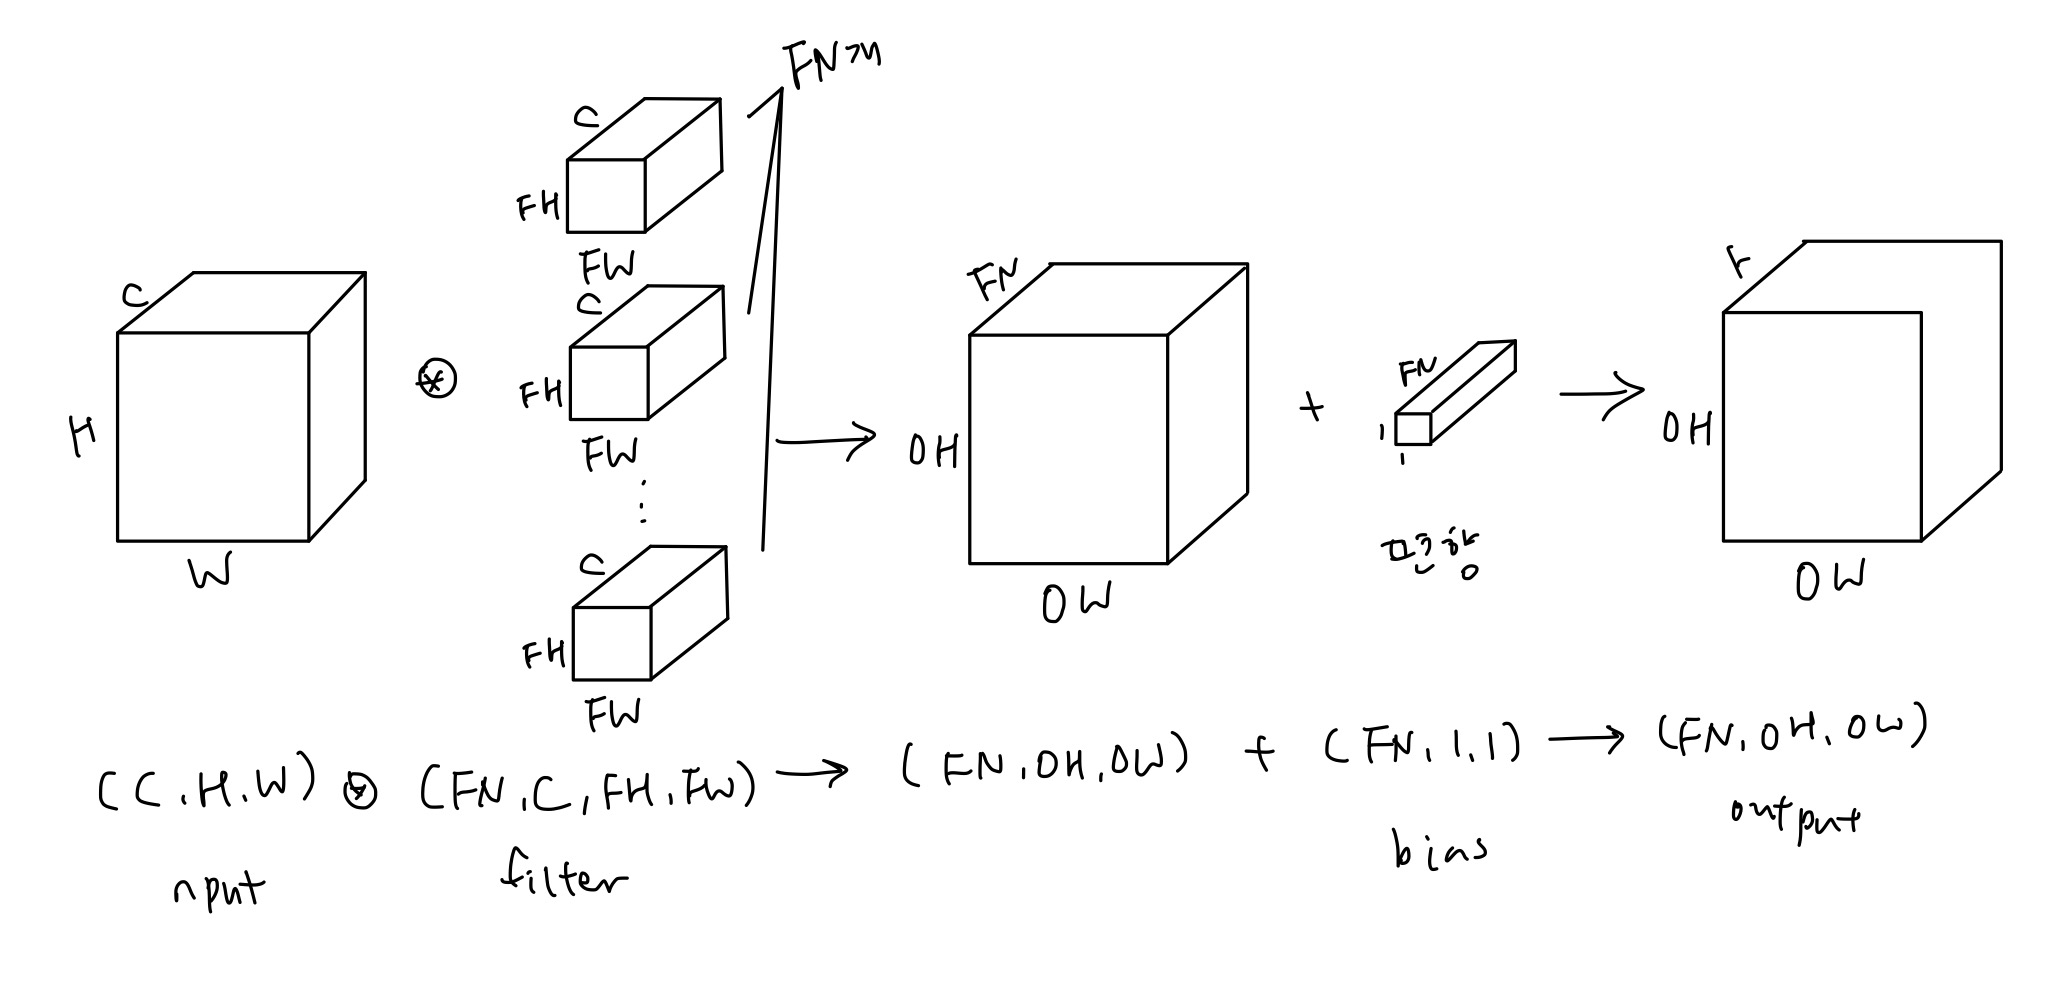 FN개
C
FH
FW
C
FH
FW
C
FH
FW
C
H
W
⊛
FN
OH
OW
+
FN
1
1
편향
F
OH
OW
(C, H, W) ⊛ (FN, C, FH, FW) → (FN, OH, OW) + (FN, 1, 1) → (FN, OH, OW)
nput
filter
bias
output